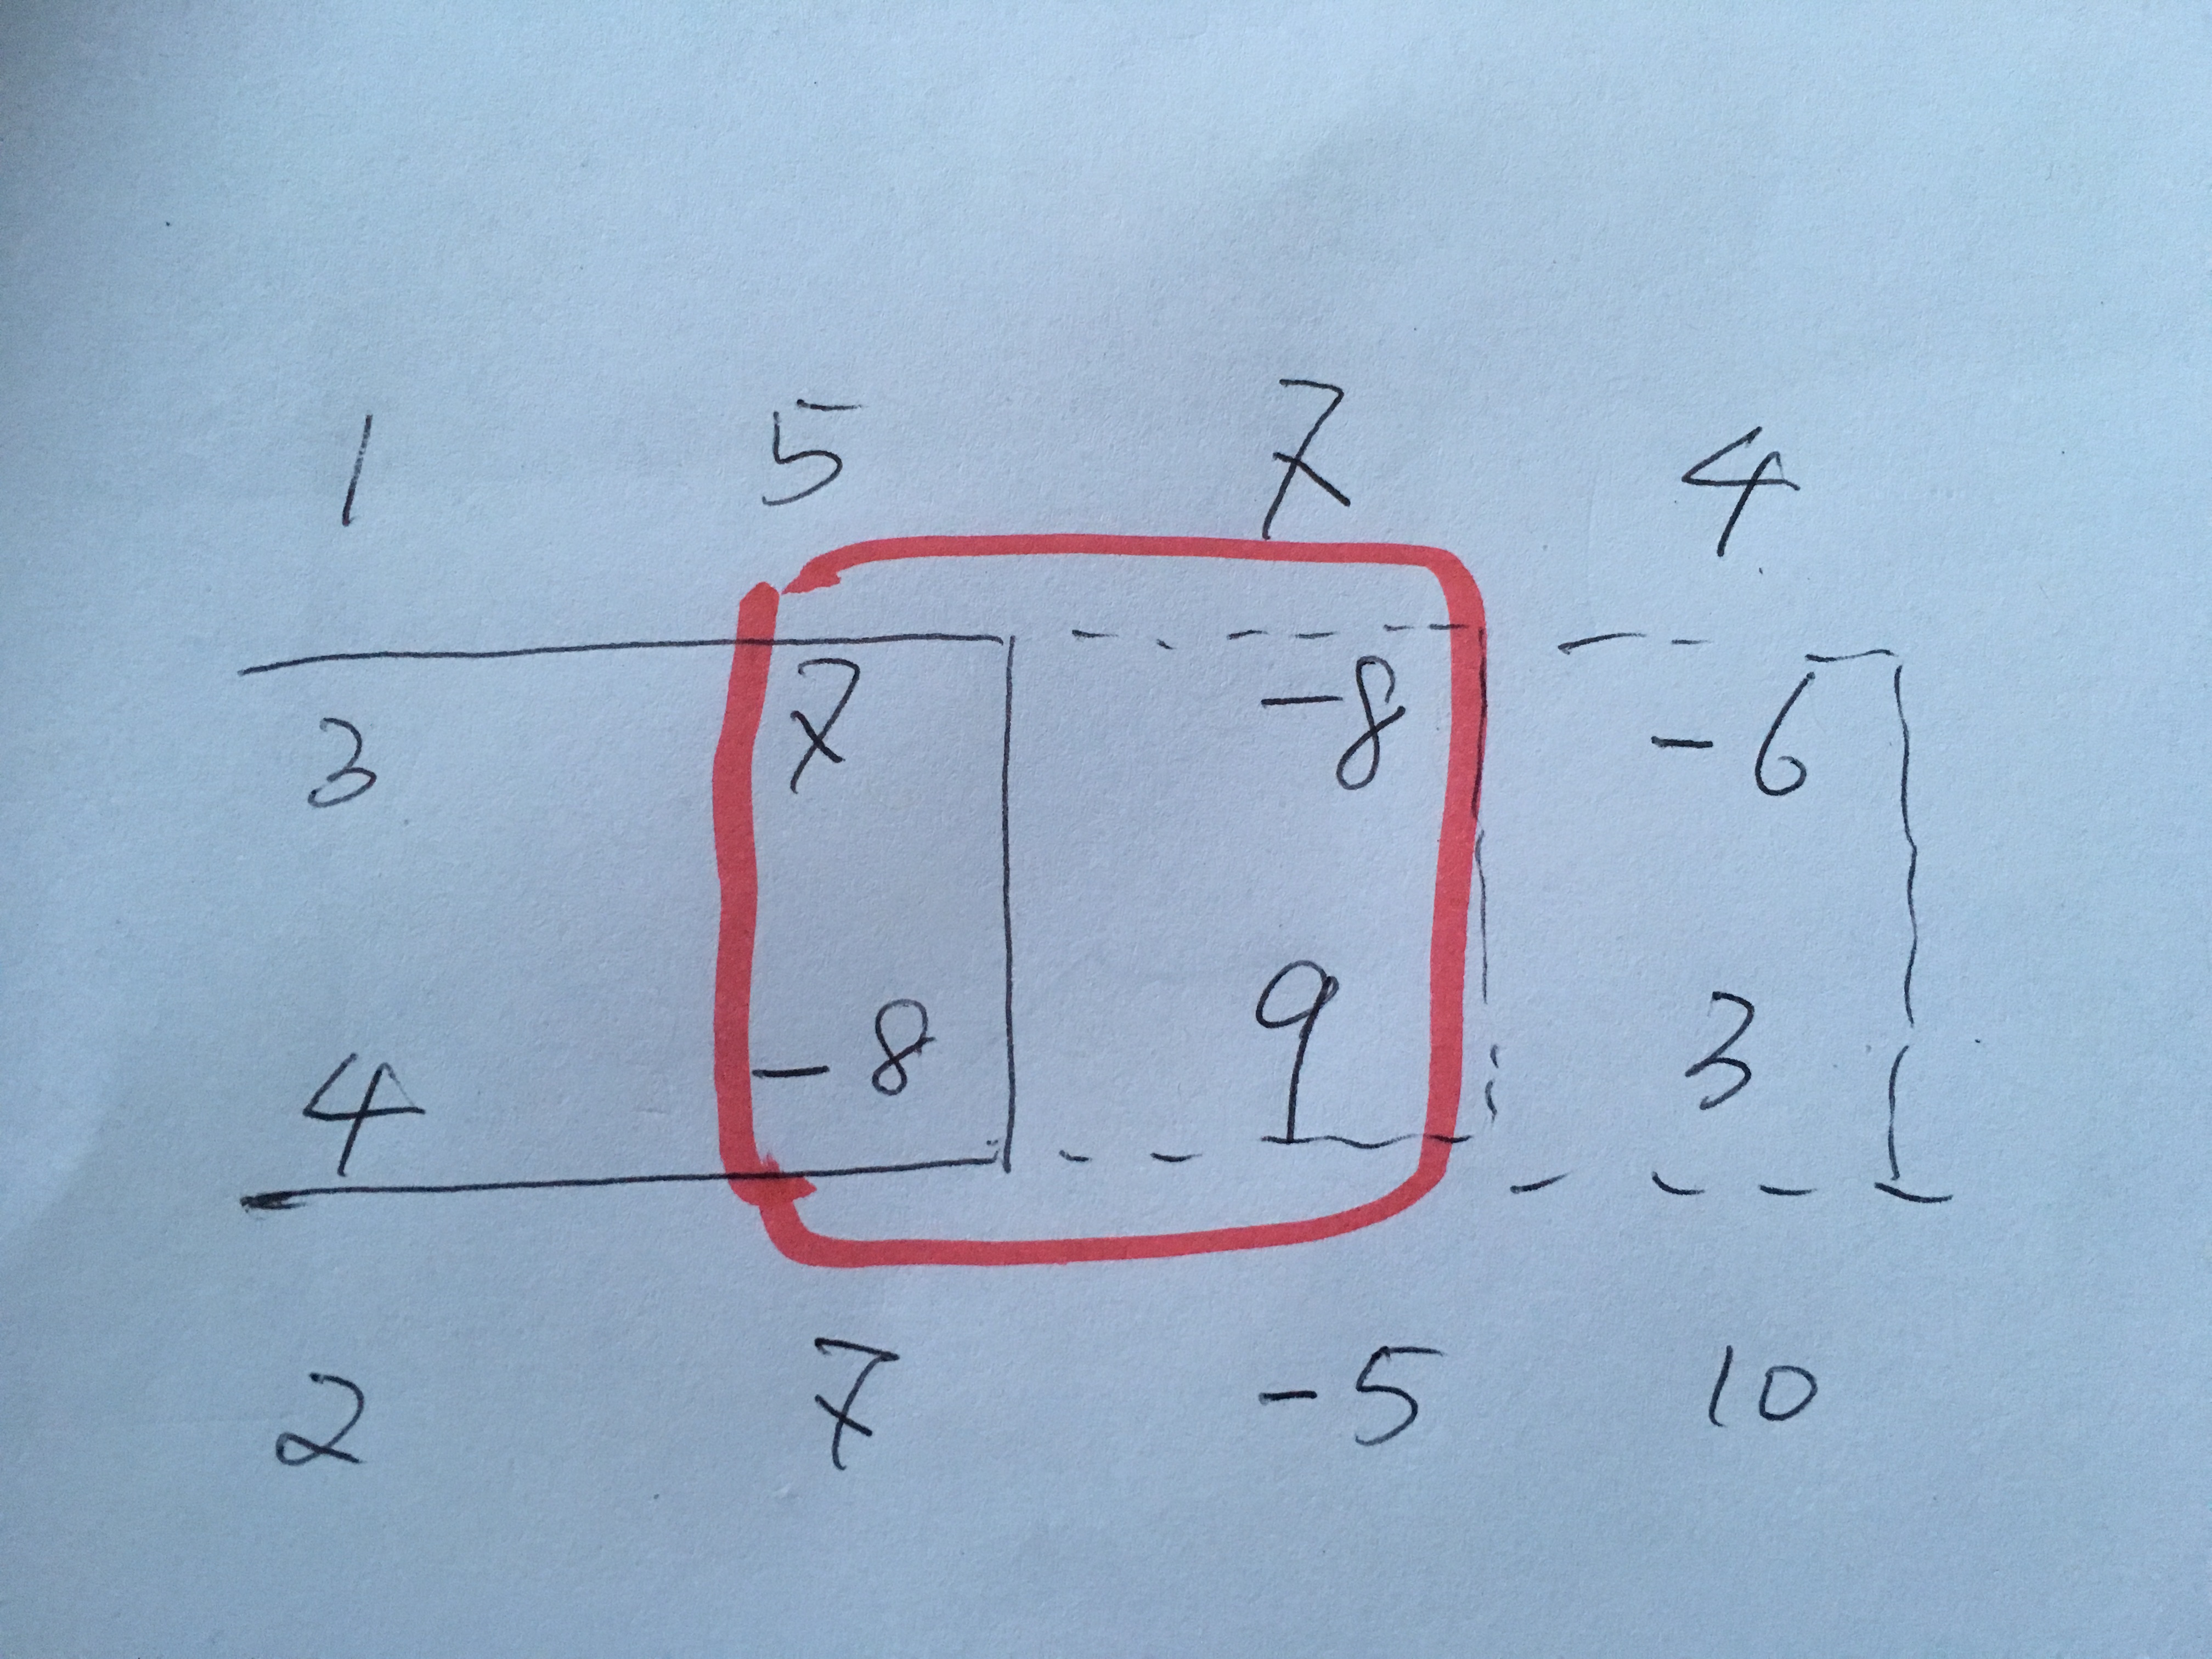 1 5 7 4
3 7 -8 -6
4 -8 9 3
2 7 -5 10